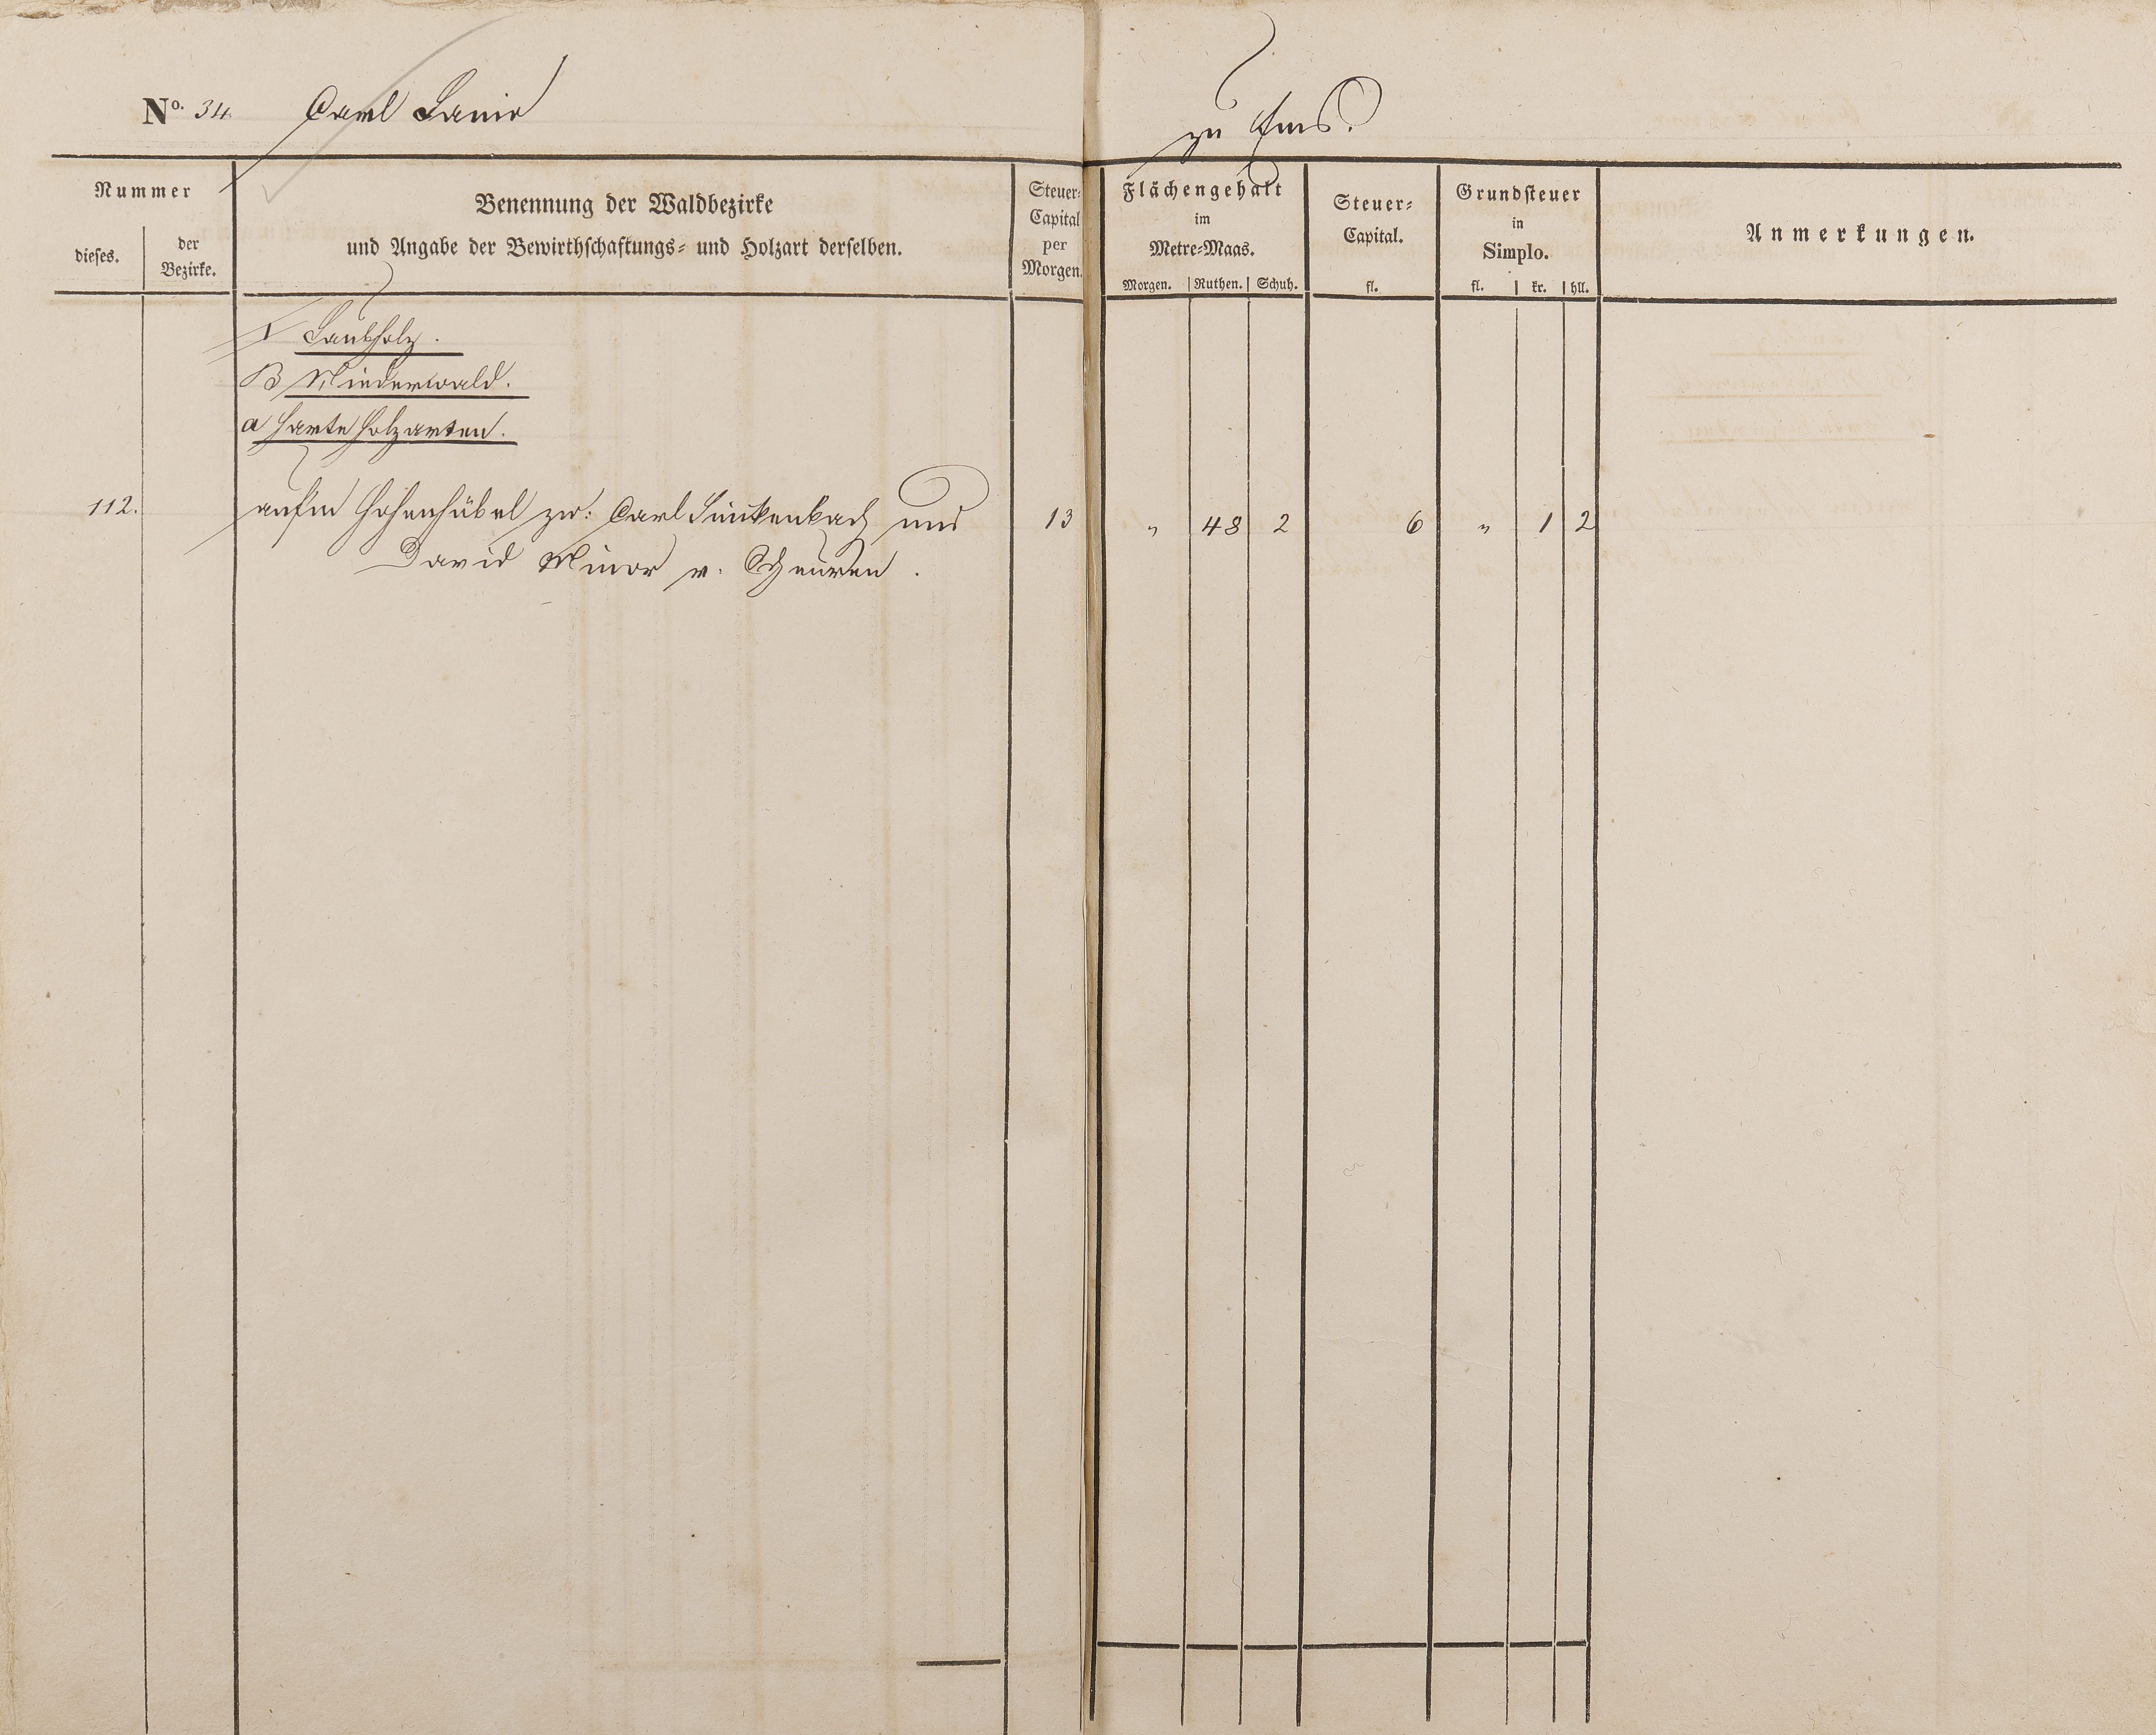 No. 34. Carl Lanio zu Ems.
Nummer
dieses.
der
Bezirke.
Benennung der Waldbezirke
und Angabe der Bewirthschaftungs- und Holzart derselben.
Steuer-
Capital
per
Morgen.
Flächengehalt
im
Metre-Maas.
Morgen. Ruthen. Schuh.
Steuer-
Capital.
fl.
Grundsteuer
in
Simplo.
fl. kr. hll.
Anmerkungen.
I Laubholz.
B Niederwald.
a harte Holzarten.
112. auf'm Hohenhübel zw: Carl Linkenbach und 13 " 48 2 6 " 1 2
David Minor v. Scheuren.